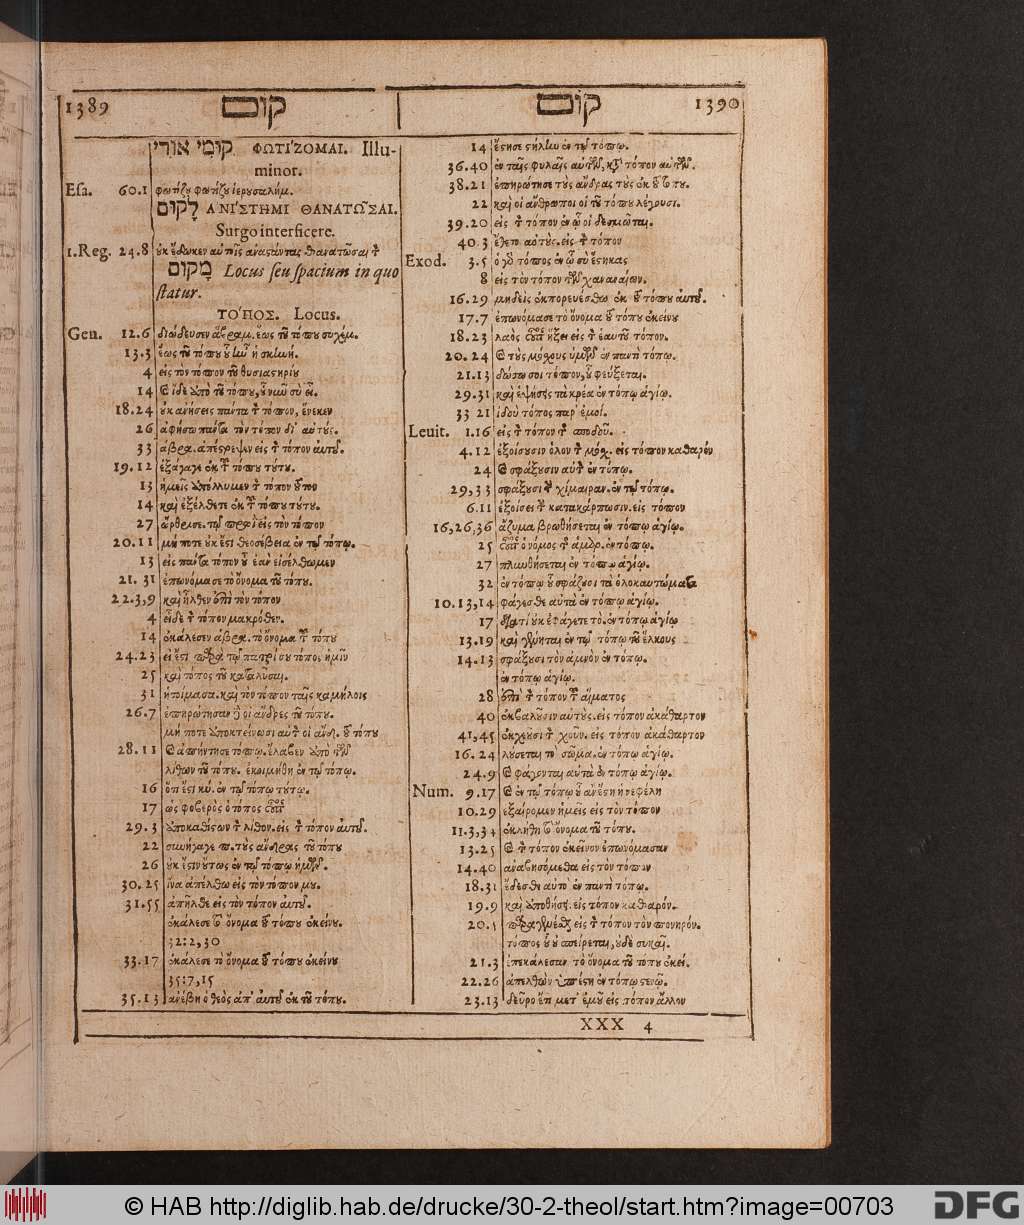 1389 קום
קוּמִי אורִי ΦΩΤΙ´ΖΟΜΑΙ. Illu-
minor.
Esa. 60.1 φωτίζου φωτίζου ἱερουσαλήμ.
לָקוּם ἈΝΊΣΤΗΜΙ ΘΑΝΑΤΩ͂ΣΑΙ.
Surgo interficere.
1. Reg. 24.8 οὐκ ἔδωκεν αὐτοῖς ἀναστάντας θανατῶσαι τ
מָקוֹם Locus seu spacium in quo
statur.
ΤΟ´ΠΟΣ. Locus.
Gen. 12.6 διώδευσεν ἄβραμ. ἕως τοῦ τόπου συχέμ.
13.3 ἕως τοῦ τόπου οὗ ἦν ἡ σκηνή.
4 εἰς τὸν τόπον τοῦ θυσιαστηρίου
14 καὶ ἴδε ἀπὸ τοῦ τόπου, οὗ νῦν σὺ εἶ.
18.24 οὐκ ἀνήσεις πάντα τὸν τόπον, ἕνεκεν
26 ἀφήσω πάντα τὸν τόπον δι' αὐτούς.
33 ἀβρα. ἀπέστρεψεν εἰς τὸν τόπον αὐτοῦ.
19.12 ἐξάγαγε ἐκ τοῦ τόπου τούτου.
13 ἡμεῖς ἀπόλλυμεν τὸν τόπον τοῦτον
14 καὶ ἐξέλθετε ἐκ τοῦ τόπου τούτου.
27 ὤρθρισε. τῷ πρωὶ εἰς τὸν τόπον
20.11 μή ποτε οὐκ ἔστι θεοσέβεια ἐν τῷ τόπῳ.
13 εἰς πάντα τόπον οὗ ἐὰν εἰσέλθωμεν
21.31 ἐπωνόμασε τὸ ὄνομα τοῦ τόπου.
22.3,9 καὶ ἦλθεν ἐπὶ τὸν τόπον
4 εἶδε τὸν τόπον μακρόθεν.
14 ἐκάλεσεν ἀβρα. τὸ ὄνομα τοῦ τόπου
24.23 εἰ ἔστι παρὰ τῷ πατρί σου τόπος ἡμῖν
25 καὶ τόπος τοῦ καταλῦσαι.
31 ἡτοίμασα. καὶ τὸν τόπον ταῖς καμήλοις
26.7 ἐπηρώτησαν δὲ οἱ ἄνδρες τοῦ τόπου.
μή ποτε ἀποκτείνωσι αὐτὸν οἱ ἄνδ. τοῦ τόπου
28.11 καὶ ἀπήντησε τόπῳ. ἔλαβεν ἀπὸ τῶν
λίθων τοῦ τόπου. ἐκοιμήθη ἐν τῷ τόπῳ.
16 ὅτι ἔστι κύ. ἐν τῷ τόπῳ τούτῳ.
17 ὡς φοβερὸς ὁ τόπος οὗτος
29.3 ἀποκαθίστων τὸν λίθον. εἰς τὸν τόπον αὐτοῦ.
22 συνήγαγε π. τοὺς ἄνδρας τοῦ τόπου
26 οὐκ ἔστιν οὕτως ἐν τῷ τόπῳ ἡμῶν.
30.25 ἵνα ἀπέλθω εἰς τὸν τόπον μου.
31.55 ἀπῆλθε εἰς τὸν τόπον αὐτοῦ.
ἐκάλεσε τὸ ὄνομα τοῦ τόπου ἐκείνου.
32:2,30
33.17 ἐκάλεσε τὸ ὄνομα τοῦ τόπου ἐκείνου
35:7,15
35.13 ἀνέβη ὁ θεὸς ἀπ' αὐτοῦ ἐκ τοῦ τόπου.
קוֹם 1390
14 ἔστησε στήλην ἐν τῷ τόπῳ.
36.40 ἐν ταῖς φυλαῖς αὐτῶν, κατὰ τόπον αὐτῶν.
38.21 ἐπηρώτησε τοὺς ἄνδρας τοὺς ἐκ τοῦ τόπου.
22 καὶ οἱ ἄνθρωποι οἱ τοῦ τόπου λέγουσι.
39.20 εἰς τὸν τόπον ἐν ᾧ οἱ δεσμῶται.
40 3 ἔθετο αὐτούς. εἰς τὸν τόπον
Exod. 3.5 ὁ γὰρ τόπος ἐν ᾧ σὺ ἕστηκας
8 εἰς τὸν τόπον τῶν χαναναίων.
16.29 μηδεὶς ἐκπορευέσθω ἐκ τοῦ τόπου αὐτοῦ.
17.7 ἐπωνόμασε τὸ ὄνομα τοῦ τόπου ἐκείνου
18.23 λαὸς οὗτος ἥξει εἰς τὸν ἑαυτοῦ τόπον.
20.24 καὶ τοὺς μόσχους ὑμῶν ἐν παντὶ τόπῳ.
21.13 δώσω σοι τόπον, οὗ φεύξεται.
29.31 καὶ ἑψήσεις τὰ κρέα ἐν τόπῳ ἁγίῳ.
33 21 ἰδοὺ τόπος παρ' ἐμοί.
Leuit. 1.16 εἰς τὸν τόπον τῆς σποδοῦ.
4.12 ἐξοίσουσιν ὅλον τὸν μόσχ. εἰς τόπον καθαρὸν
24 καὶ σφάξουσιν αὐτὸν ἐν τόπῳ.
29,33 σφάξουσι τὴν χίμαιραν. ἐν τῷ τόπῳ.
6.11 ἐξοίσει τὴν κατακάρπωσιν. εἰς τόπον
16,26,36 ἄζυμα βρωθήσεται ἐν τόπῳ ἁγίῳ.
25 οὗτος ὁ νόμος τῆς ἁμαρ. ἐν τόπῳ.
27 πλυνθήσεται ἐν τόπῳ ἁγίῳ.
32 ἐν τόπῳ οὗ σφάζουσι τὰ ὁλοκαυτώματα
10.13,14 φάγεσθε αὐτὰ ἐν τόπῳ ἁγίῳ.
17 διατί οὐκ ἐφάγετε τὸ. ἐν τόπῳ ἁγίῳ
13.19 καὶ γένηται ἐν τῷ τόπῳ τοῦ ἕλκους
14.13 σφάξουσι τὸν ἀμνὸν ἐν τόπῳ.
ἐν τόπῳ ἁγίῳ.
28 ἐπὶ τὸν τόπον τοῦ αἵματος
40 ἐκβαλοῦσιν αὐτούς. εἰς τόπον ἀκάθαρτον
41,45 ἐκχεοῦσι τὸν χοῦν. εἰς τόπον ἀκάθαρτον
16.24 λούσεται τὸ σῶμα. ἐν τόπῳ ἁγίῳ.
24.9 καὶ φάγονται αὐτὰ ἐν τόπῳ ἁγίῳ.
Num. 9.17 καὶ ἐν τῷ τόπῳ οὗ ἂν ἔστη ἡ νεφέλη
10.29 ἐξαίρομεν ἡμεῖς εἰς τὸν τόπον
11.3,34 ἐκλήθη τὸ ὄνομα τοῦ τόπου.
13.25 καὶ τὸν τόπον ἐκεῖνον ἐπωνόμασαν
14.40 ἀναβησόμεθα εἰς τὸν τόπον
18.31 ἔδεσθε αὐτὸ ἐν παντὶ τόπῳ.
19.9 καὶ ἀποθήσει. εἰς τόπον καθαρόν.
20.5 παραγενέσθαι εἰς τὸν τόπον τὸν πονηρόν.
τόπος οὗ οὐ σπείρεται, οὐδὲ συκαῖ.
21.3 ἐπεκάλεσαν τὸ ὄνομα τοῦ τόπου ἐκεί.
22.26 ἀπελθὼν ὑπέστη ἐν τόπῳ στενῷ.
23.13 δεῦρο ἔτι μετ' ἐμοῦ εἰς τόπον ἄλλον
XXX 4
© HAB http://diglib.hab.de/drucke/30-2-theol/start.htm?image=00703
DFG